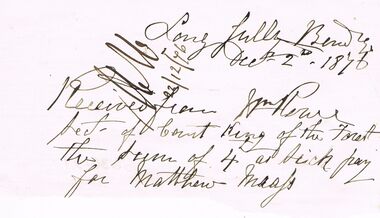 Long Gully Bendigo
Dec 2nd 1876
23/12/76
Received from Jm Rowe
Sect of Court King of the Forest
the sum of 4 as sick pay
for Matthew Maass